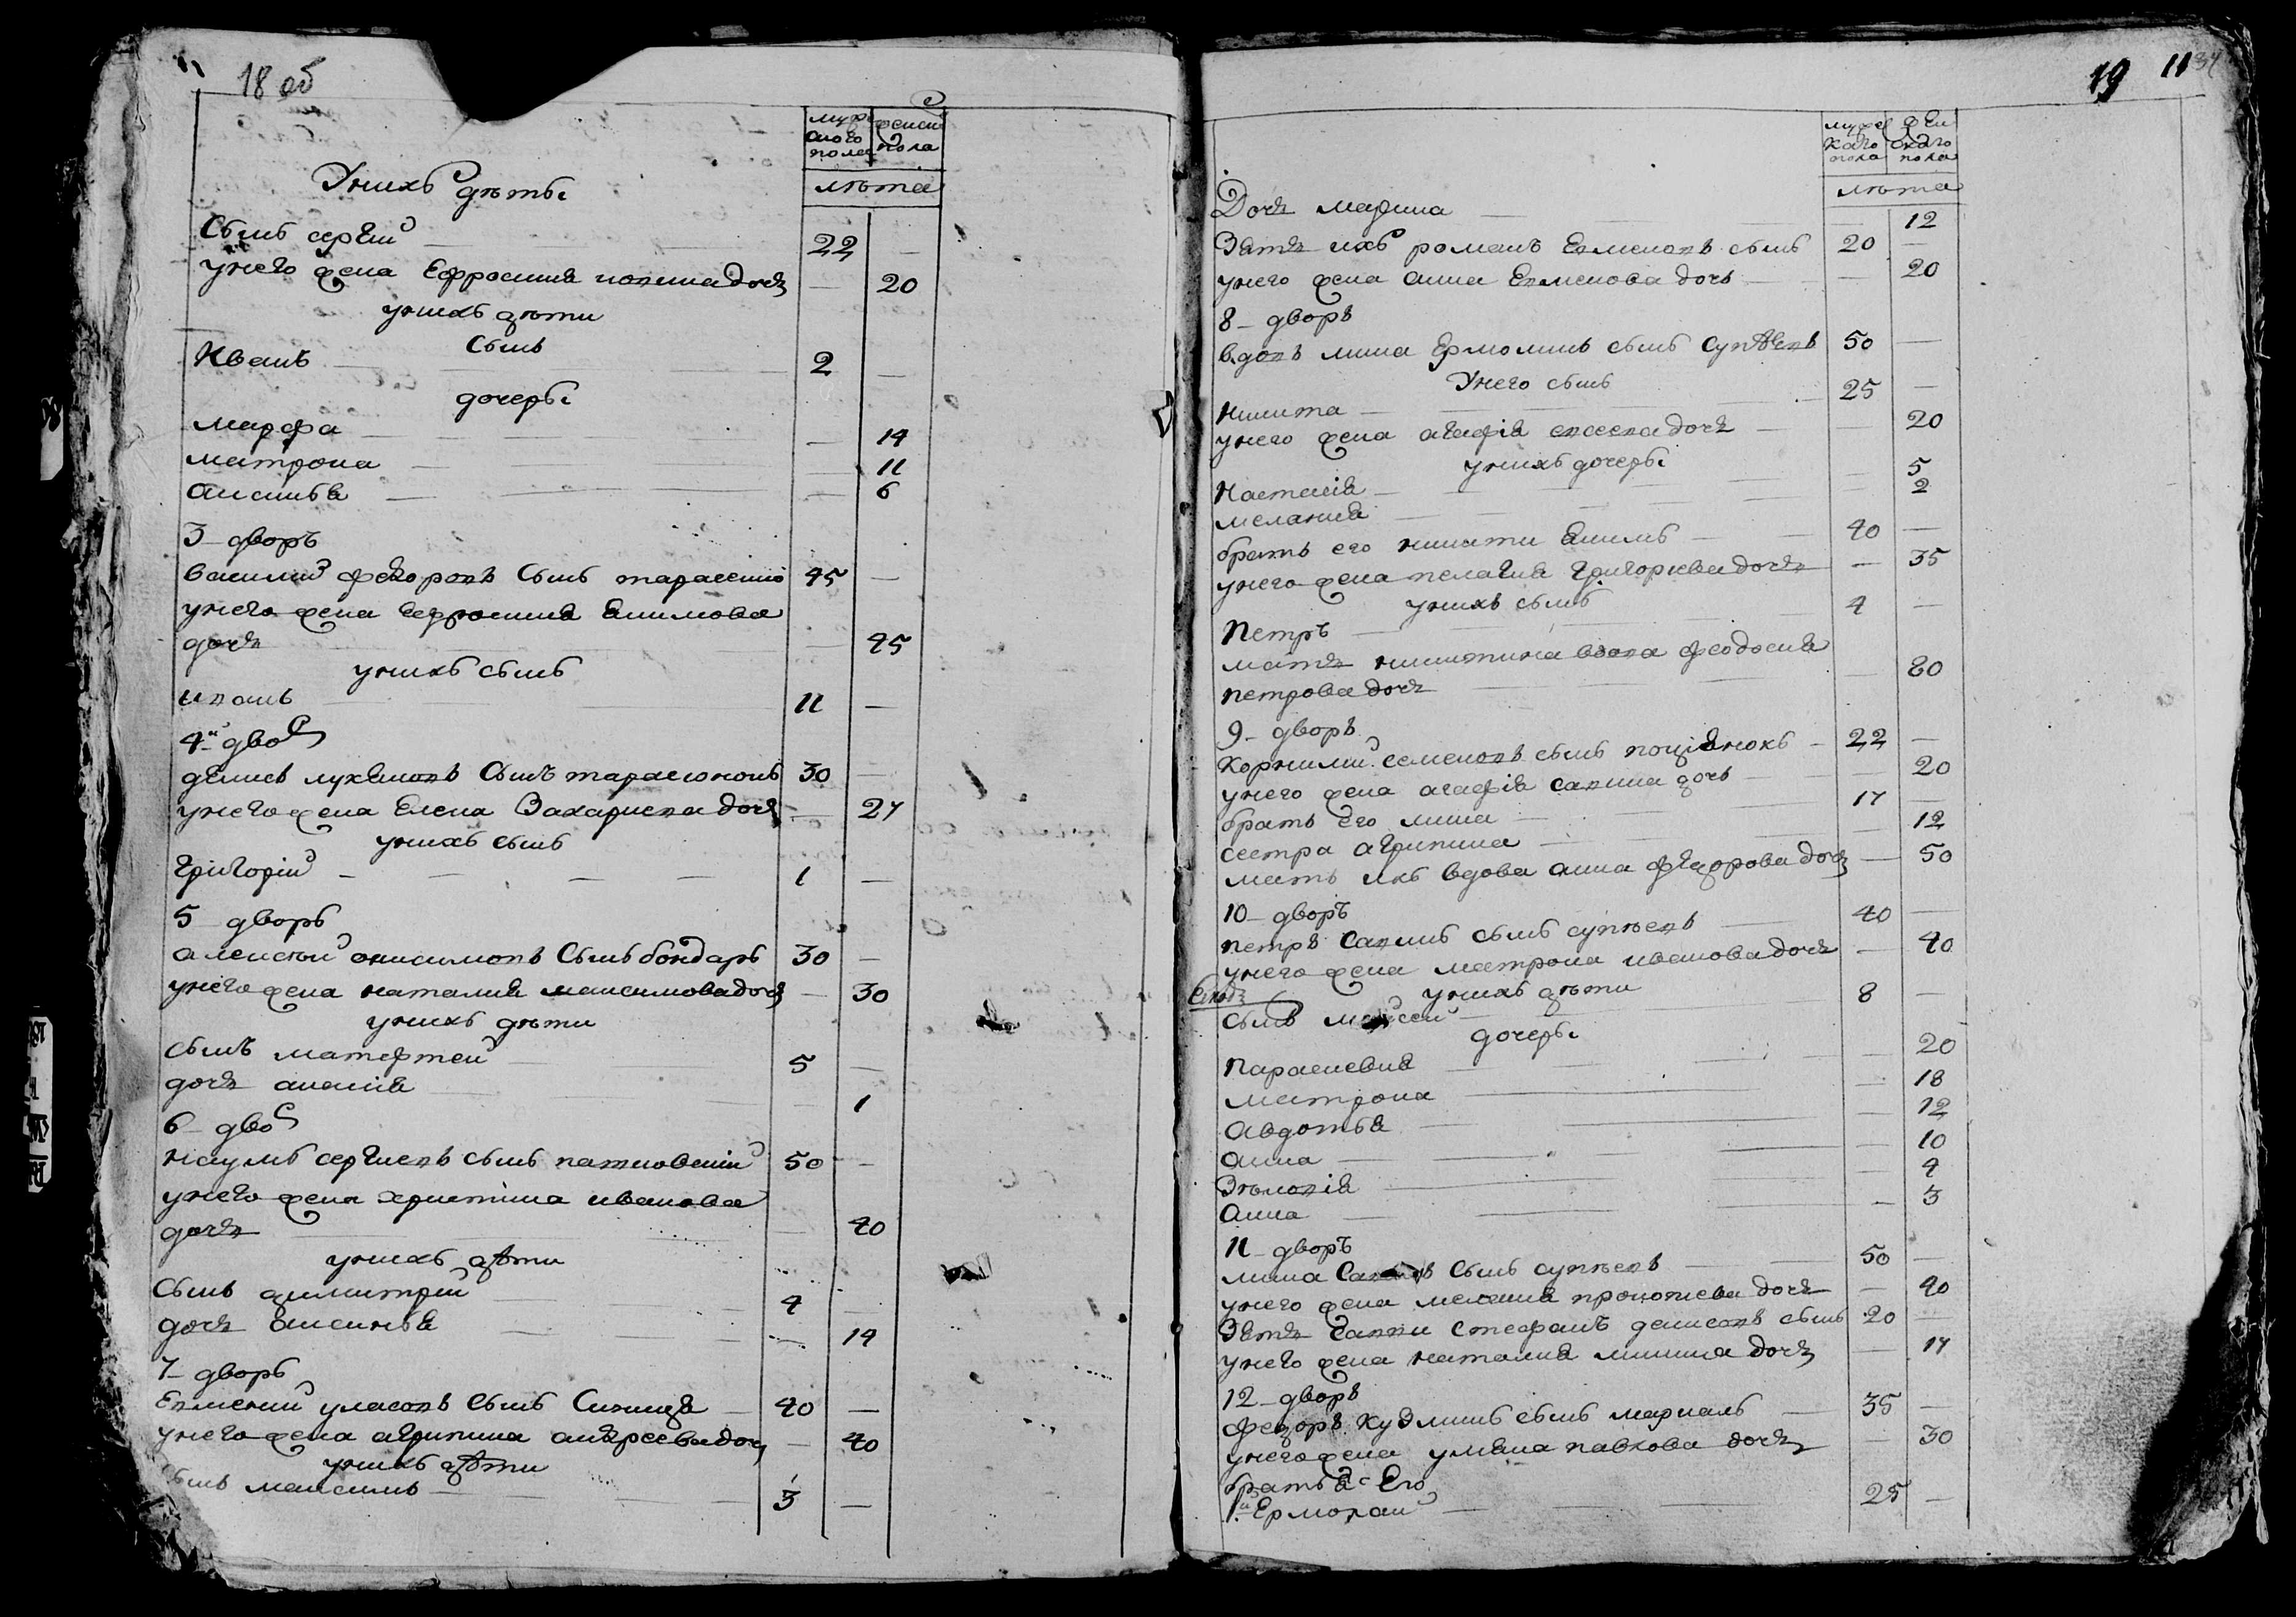 18 об
мужскаго пола женска пола
лѣта
У нихъ дѣти
Сынъ сергей — 22 —
у него жена Ефросиния дочь — 20
у нихъ дѣти
Сынъ
Иванъ — 2 —
дочери
марфа — 14
матрона — 11
аксинья — 6
3 дворъ
василий федоровъ Сынъ 45 —
у него жена Ефросиния Екимова
дочь — 45
у нихъ сынъ
иванъ 11 —
4й дво
денисъ лукяновъ Сынъ 30 —
у него жена Елена Захариева дочь — 27
у нихъ сынъ
Григорій — 1 —
5 дворъ
алексѣй онисимовъ Сынъ бондарь 30 —
у него жена наталия максимова дочь — 30
у нихъ дѣти
сынъ матфѣей 5 —
дочь — 1
6 дво
наумъ сергиевъ сынъ 50 —
у него жена христина иванова
дочь — 40
у нихъ дѣти
Сынъ димитрий 4 —
дочь аксинья — 14
7 дворъ
Евмений уласовъ Сынъ Синица — 40 —
у него жена агрипина андреева дочь — 40
у нихъ дѣти
Сынъ максимъ — 3 —
19 11 34
мужескаго пола женскаго пола
лѣта
Дочь марина — 12
Зять ихъ романъ Евменовъ сынъ 20 —
у него жена анна Евменова дочь — 20
8 дворъ
вдовъ мина Ермолинъ сынъ 50 —
У него сынъ
никита — 25 —
у него жена агафія дочь — 20
у нихъ дочери
настасія — 5
мелания — 2
братъ его никити Екимъ — 40 —
у него жена пелагия григориева дочь — 35
у нихъ сынъ
Петръ — 4 —
мать никитина вдова феодосия
петрова дочь — 80
9 дворъ
Корнилий семеновъ сынъ — 22 —
у него жена агафія савина дочь — 20
братъ его мина — 17 —
сестра агрипина — 12
мать ихъ вдова анна федорова дочь — 50
10 дворъ
петръ Савинъ сынъ супѣевъ 40 —
у него жена матрона иванова дочь — 40
у нихъ дѣти
сынъ моисей 8 —
дочери
параскевия — 20
матрона — 18
авдотья — 12
анна — 10
Зѣновія — 4
анна — 3
11 дворъ
мина Сынъ супѣевъ — 50 —
у него жена мелания прокопиева дочь — 40
Зять стефанъ денисовъ сынъ 20 —
у него жена наталия минина дочь — 17
12 дворъ
федоръ Кузминъ сынъ — 35 —
у него жена улияна павлова дочь — 30
братья Его
1й Ермолай — 25 —